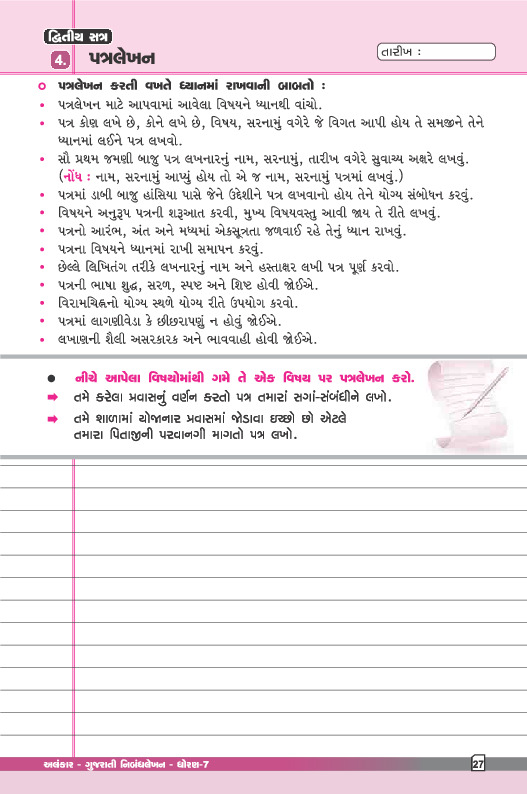 દ્વિતીય સત્ર
4. પત્રલેખન
તારીખ :
પત્રલેખન કરતી વખતે ધ્યાનમાં રાખવાની બાબતો :
• પત્રલેખન માટે આપવામાં આવેલા વિષયને ધ્યાનથી વાંચો.
• પત્ર કોણ લખે છે, કોને લખે છે, વિષય, સરનામું વગેરે જે વિગત આપી હોય તે સમજીને તેને
ધ્યાનમાં લઈને પત્ર લખવો.
• સૌ પ્રથમ જમણી બાજુ પત્ર લખનારનું નામ, સરનામું, તારીખ વગેરે સુવાચ્ય અક્ષરે લખવું.
(નોંધ : નામ, સરનામું આપ્યું હોય તો એ જ નામ, સરનામું પત્રમાં લખવું.)
• પત્રમાં ડાબી બાજુ હાંસિયા પાસે જેને ઉદ્દેશીને પત્ર લખવાનો હોય તેને યોગ્ય સંબોધન કરવું.
• વિષયને અનુરૂપ પત્રની શરૂઆત કરવી, મુખ્ય વિષયવસ્તુ આવી જાય તે રીતે લખવું.
• પત્રનો આરંભ, અંત અને મધ્યમાં એકસૂત્રતા જળવાઈ રહે તેનું ધ્યાન રાખવું.
• પત્રના વિષયને ધ્યાનમાં રાખી સમાપન કરવું.
• છેલ્લે લિખિતંગ તરીકે લખનારનું નામ અને હસ્તાક્ષર લખી પત્ર પૂર્ણ કરવો.
• પત્રની ભાષા શુદ્ધ, સરળ, સ્પષ્ટ અને શિષ્ટ હોવી જોઈએ.
• વિરામચિહ્નનો યોગ્ય સ્થળે યોગ્ય રીતે ઉપયોગ કરવો.
• પત્રમાં લાગણીવેડા કે છીછરાપણું ન હોવું જોઈએ.
• લખાણની શૈલી અસરકારક અને ભાવવાહી હોવી જોઈએ.
● નીચે આપેલા વિષયોમાંથી ગમે તે એક વિષય પર પત્રલેખન કરો.
➡ તમે કરેલા પ્રવાસનું વર્ણન કરતો પત્ર તમારાં સગાં-સંબંધીને લખો.
➡ તમે શાળામાં યોજાનાર પ્રવાસમાં જોડાવા ઇચ્છો છો એટલે
તમારા પિતાજીની પરવાનગી માગતો પત્ર લખો.
અલંકાર - ગુજરાતી નિબંધલેખન - ધોરણ-7
27